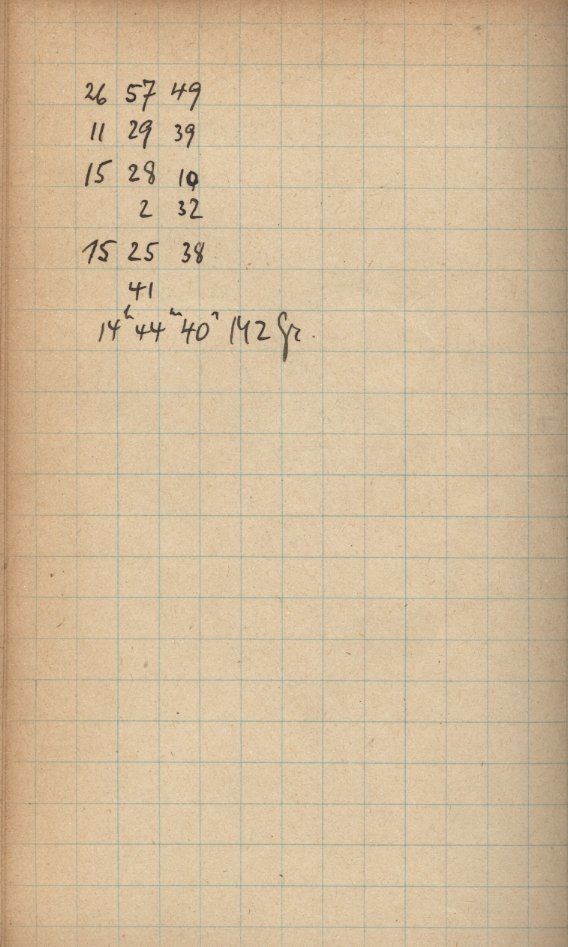 26 57 49
11 29 39
15 28 10
2 32
15 25 38
41
14h 44m 40s 142 Gr.